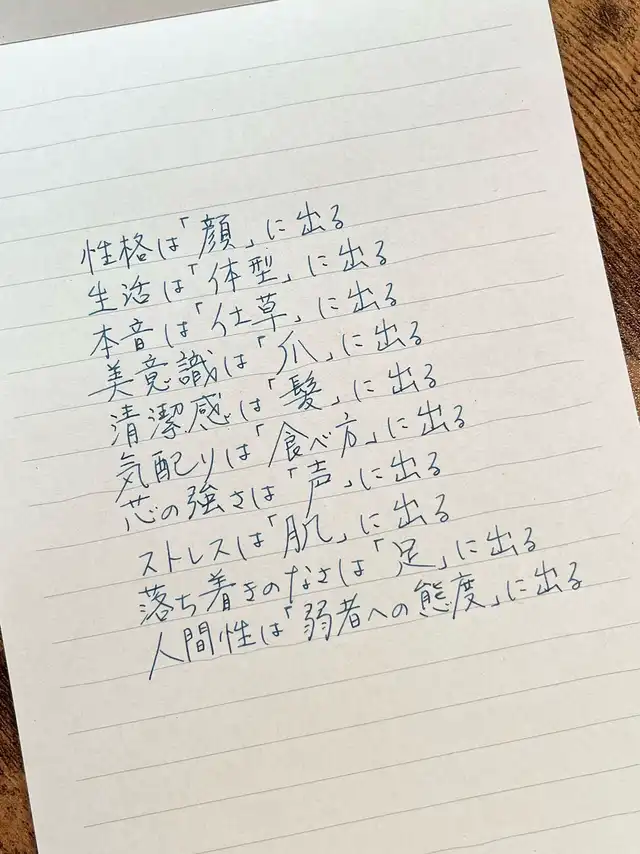 性格は「顔」に出る
生活は「体型」に出る
本音は「仕草」に出る
美意識は「爪」に出る
清潔感は「髪」に出る
気配りは「食べ方」に出る
芯の強さは「声」に出る
ストレスは「肌」に出る
落ち着きのなさは「足」に出る
人間性は「弱者への態度」に出る